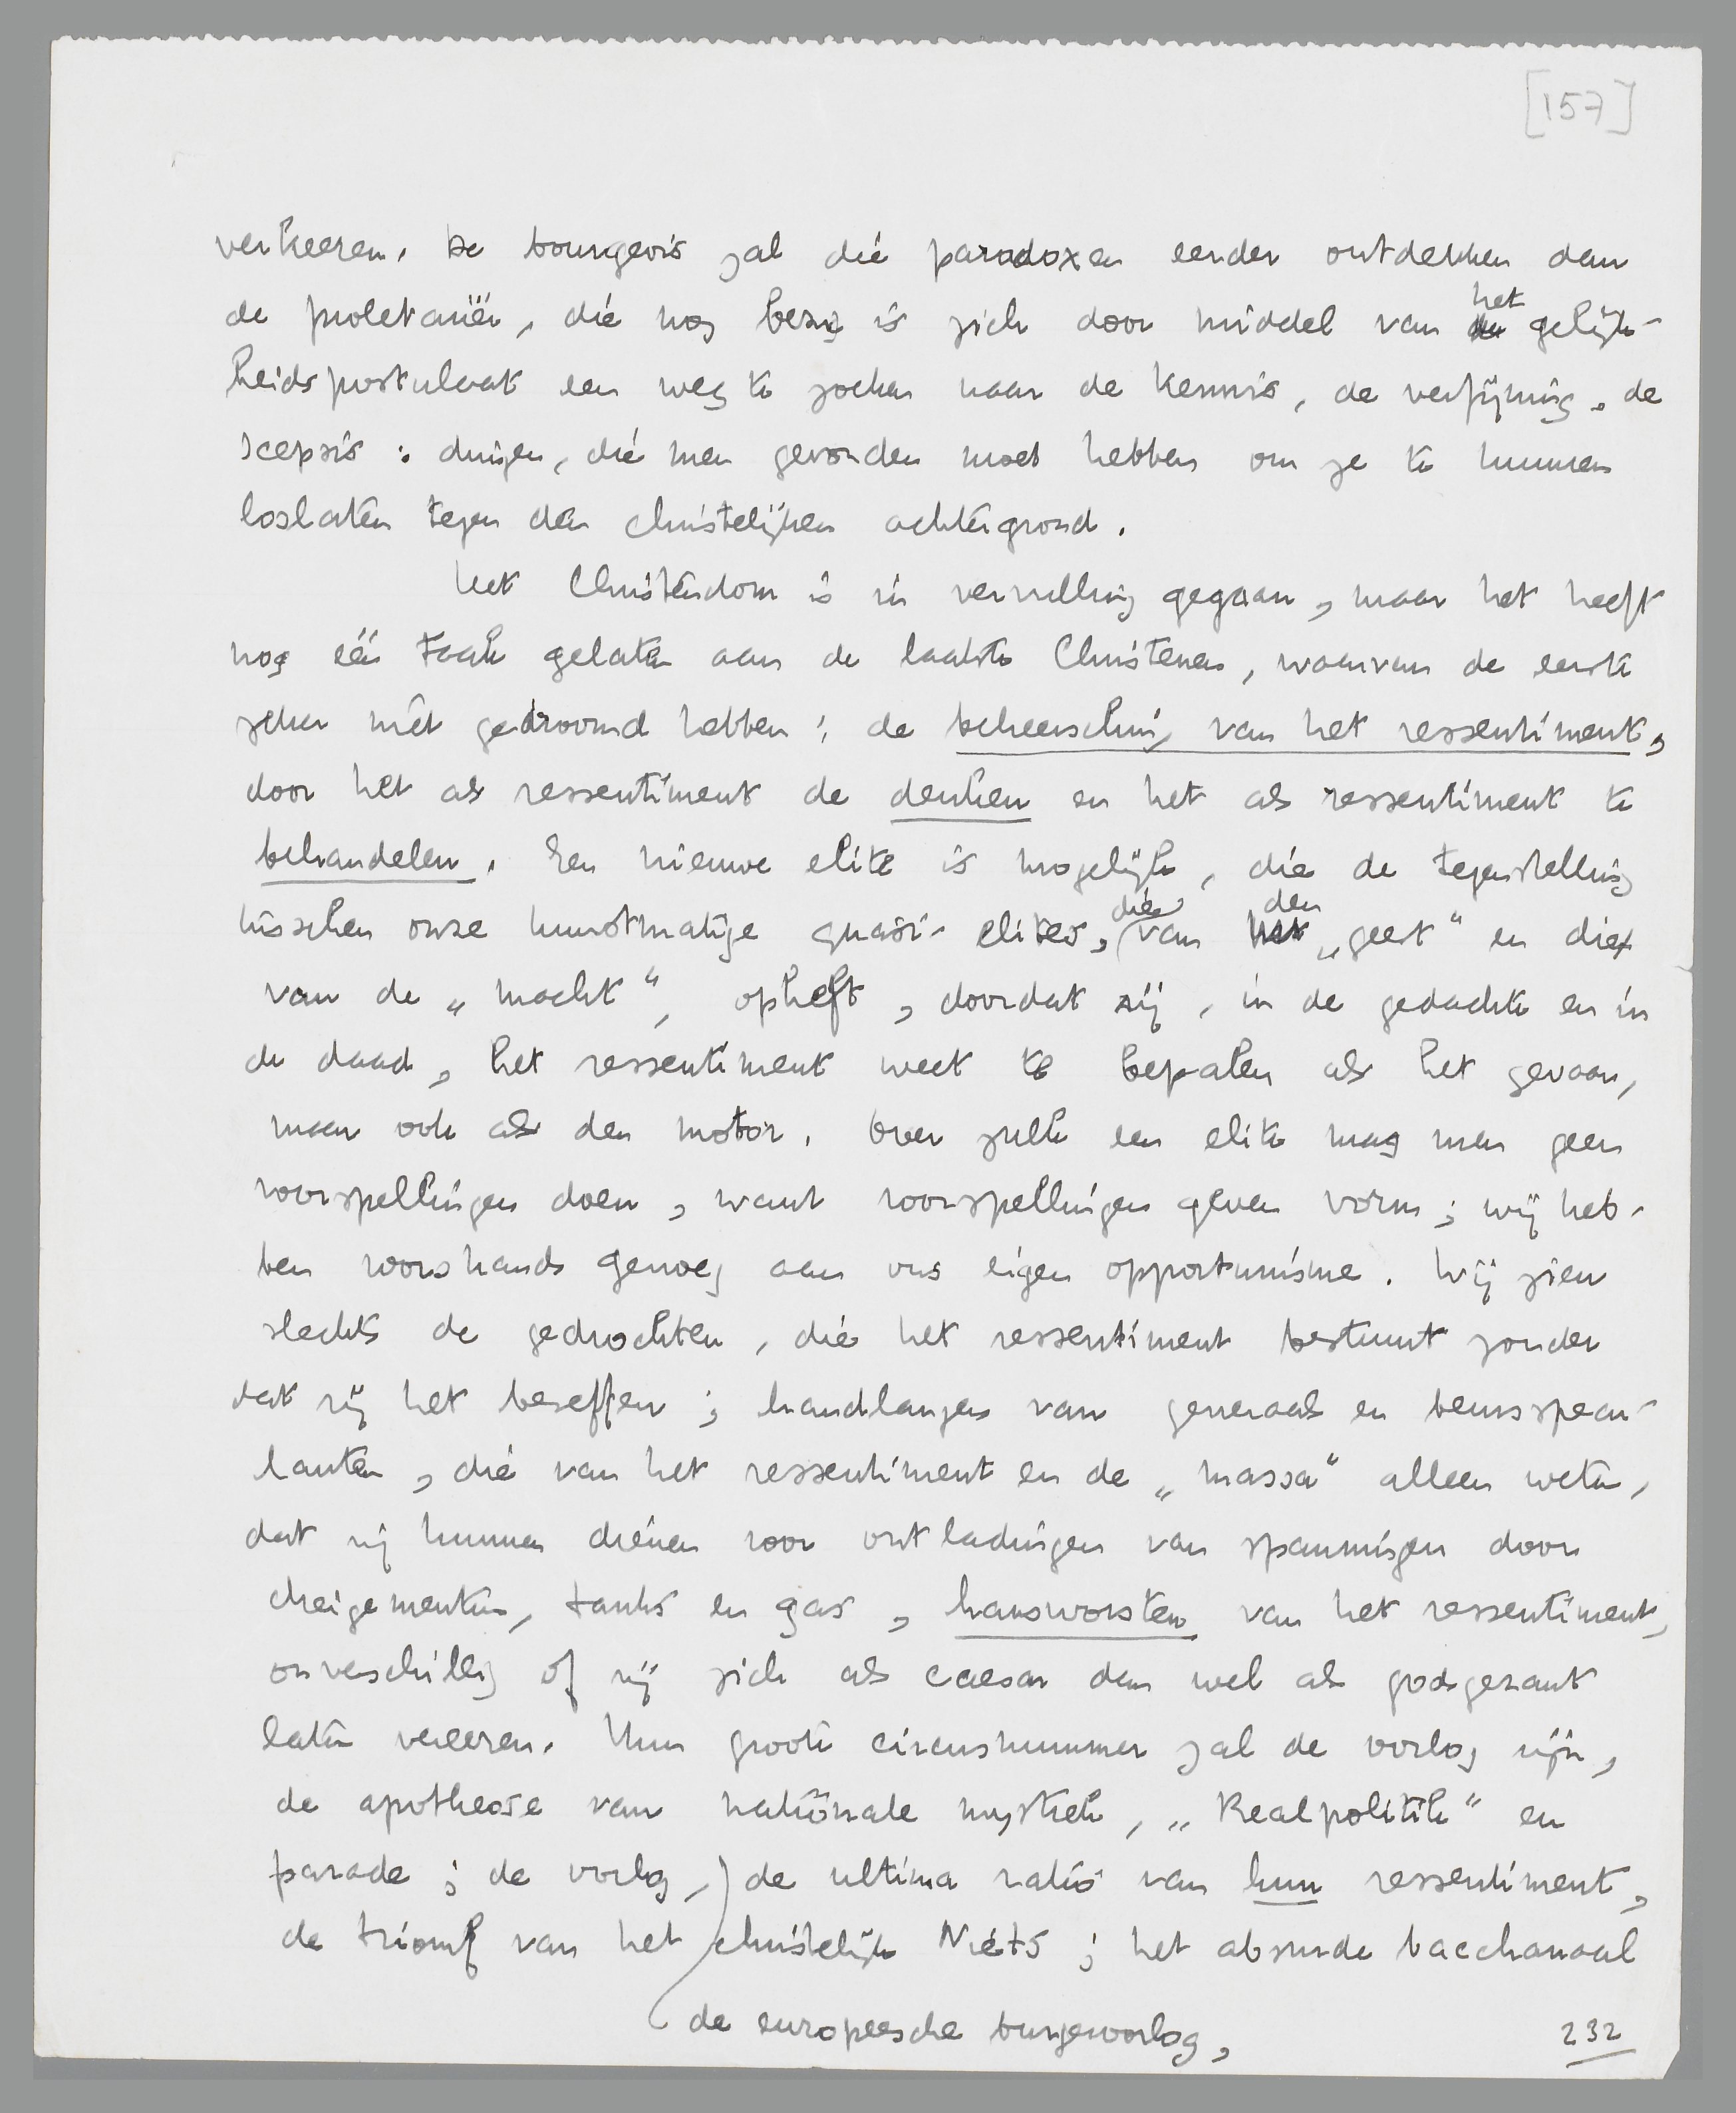 [157]
verkeeren. De bourgeois zal die paradoxen eerder ontdekken dan
de proletariër, die nog bezig is zich door middel van het gelijk-
heidspostulaat een weg te zoeken naar de kennis, de verfijning, de
scepsis: dingen, die men gevonden moet hebben om ze te kunnen
loslaten tegen den christelijken achtergrond.
Het Christendom is in vervulling gegaan, maar het heeft
nog één taak gelaten aan de laatste Christenen, waarvan de eerste
zeker niet gedroomd hebben: de beheersching van het ressentiment,
door het als ressentiment te denken en het als ressentiment te
behandelen. Een nieuwe elite is mogelijk, die de tegenstelling
tusschen onze kunstmatige quasi-elites, die van den „geest" en die
van de „macht", opheft, doordat zij, in de gedachte en in
de daad, het ressentiment weet te bepalen als het gevaar,
maar ook als den motor. Over zulk een elite mag men geen
voorspellingen doen, want voorspellingen geven vorm; wij heb-
ben voorshands genoeg aan ons eigen opportunisme. Wij zien
slechts de gedrochten, die het ressentiment bestuurt zonder
dat zij het beseffen; handlangers van generaals en beursspecu-
lanten, die van het ressentiment en de „massa" alleen weten,
dat zij kunnen dienen voor ontladingen van spanningen door
dreigementen, tanks en gas, hansworsten van het ressentiment,
onverschillig of zij zich als caesar dan wel als godsgezant
laten vereeren. Hun groote circusnummer zal de oorlog zijn,
de apotheose van nationale mystiek, „Realpolitik" en
parade; de oorlog, de ultima ratio van hun ressentiment,
de triomf van het christelijk Niets; het absurde bacchanaal
de europeesche burgeroorlog,
232